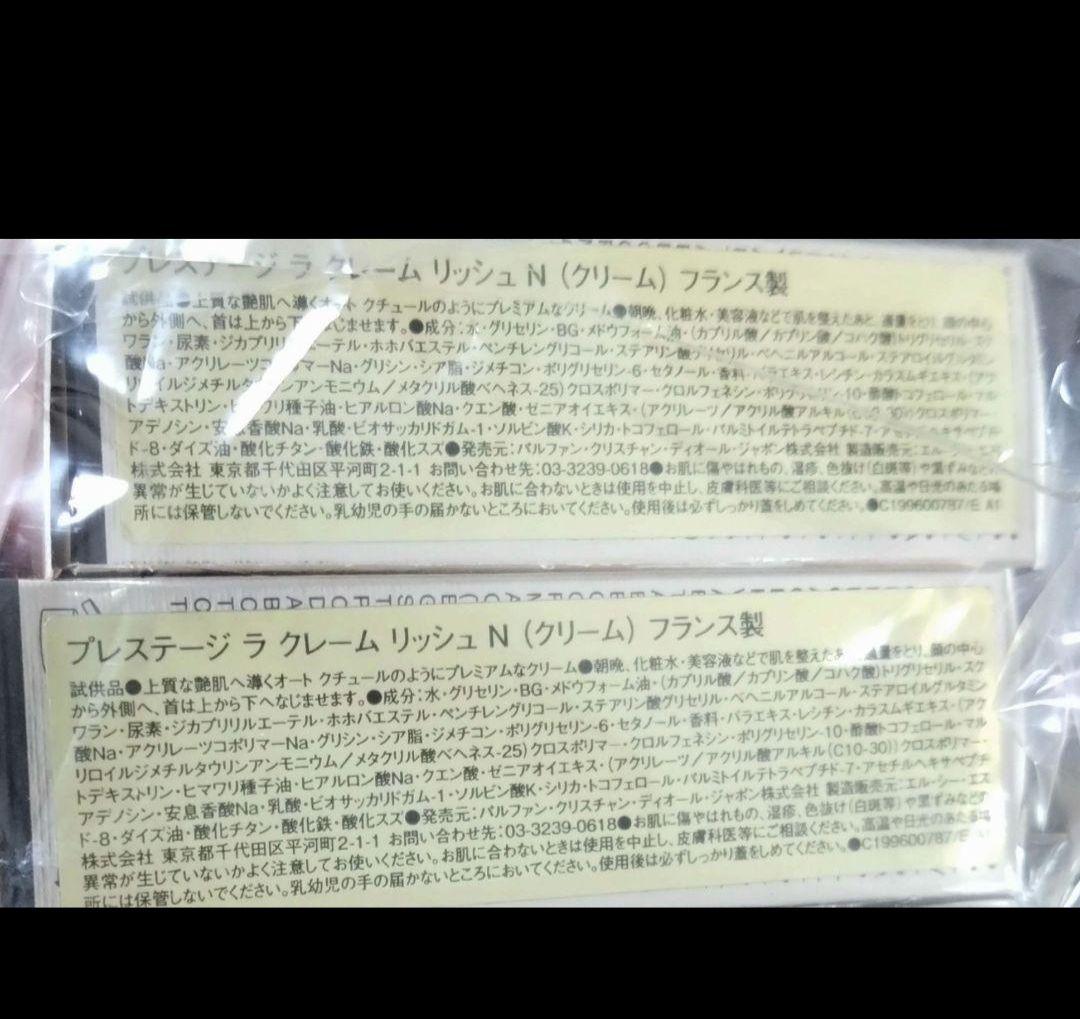 プレステージ ラ クレーム リッシュ N （クリーム） フランス製
試供品●上質な艶肌へ導くオート クチュールのようにプレミアムなクリーム●朝晩、化粧水・美容液などで肌を整えたあと、適量をとり、顔の中心
から外側へ、首は上から下へなじませます。●成分：水・グリセリン・BG・メドウフォーム油・（カプリル酸／カプリン酸／コハク酸）トリグリセリル・スク
ワラン・尿素・ジカプリリルエーテル・ホホバエステル・ペンチレングリコール・ステアリン酸グリセリル・ベヘニルアルコール・ステアロイルグルタミン
酸Na・アクリレーツコポリマーNa・グリシン・シア脂・ジメチコン・ポリグリセリン-6・セタノール・香料・パラエキス・レシチン・カラスムギエキス・（アク
リロイルジメチルタウリンアンモニウム／メタクリル酸ベヘネス-25）クロスポリマー・クロルフェネシン・ポリグリセリン-10・酢酸トコフェロール・マル
トデキストリン・ヒマワリ種子油・ヒアルロン酸Na・クエン酸・ゼニアオイエキス・（アクリレーツ／アクリル酸アルキル(C10-30)）クロスポリマー・
アデノシン・安息香酸Na・乳酸・ビオサッカリドガム-1・ソルビン酸K・シリカ・トコフェロール・パルミトイルテトラペプチド-7・アセチルヘキサペプチ
ド-8・ダイズ油・酸化チタン・酸化鉄・酸化スズ●発売元：パルファン・クリスチャン・ディオール・ジャポン株式会社 製造販売元：エル・シー・
株式会社 東京都千代田区平河町2-1-1 お問い合わせ先：03-3239-0618●お肌に傷やはれもの、湿疹、色抜け（白斑等）や黒ずみなどの
異常が生じていないかよく注意してお使いください。お肌に合わないときは使用を中止し、皮膚科医等にご相談ください。高温や日光のあたる場
所には保管しないでください。乳幼児の手の届かないところにおいてください。使用後は必ずしっかり蓋をしめてください。●C199600787/E A1
プレステージ ラ クレーム リッシュ N （クリーム） フランス製
試供品●上質な艶肌へ導くオート クチュールのようにプレミアムなクリーム●朝晩、化粧水・美容液などで肌を整えたあと、適量をとり、顔の中心
から外側へ、首は上から下へなじませます。●成分：水・グリセリン・BG・メドウフォーム油・（カプリル酸／カプリン酸／コハク酸）トリグリセリル・スク
ワラン・尿素・ジカプリリルエーテル・ホホバエステル・ペンチレングリコール・ステアリン酸グリセリル・ベヘニルアルコール・ステアロイルグルタミン
酸Na・アクリレーツコポリマーNa・グリシン・シア脂・ジメチコン・ポリグリセリン-6・セタノール・香料・バラエキス・レシチン・カラスムギエキス・（アク
リロイルジメチルタウリンアンモニウム／メタクリル酸ベヘネス-25）クロスポリマー・クロルフェネシン・ポリグリセリン-10・酢酸トコフェロール・マル
トデキストリン・ヒマワリ種子油・ヒアルロン酸Na・クエン酸・ゼニアオイエキス・（アクリレーツ／アクリル酸アルキル(C10-30)）クロスポリマー・
アデノシン・安息香酸Na・乳酸・ビオサッカリドガム-1・ソルビン酸K・シリカ・トコフェロール・パルミトイルテトラペプチド-7・アセチルヘキサペプチ
ド-8・ダイズ油・酸化チタン・酸化鉄・酸化スズ●発売元：パルファン・クリスチャン・ディオール・ジャポン株式会社 製造販売元：エル・シー・エス
株式会社 東京都千代田区平河町2-1-1 お問い合わせ先：03-3239-0618●お肌に傷やはれもの、湿疹、色抜け（白斑等）や黒ずみなどの
異常が生じていないかよく注意してお使いください。お肌に合わないときは使用を中止し、皮膚科医等にご相談ください。高温や日光のあたる場
所には保管しないでください。乳幼児の手の届かないところにおいてください。使用後は必ずしっかり蓋をしめてください。●C199600787/E A1